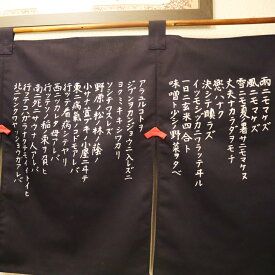 雨ニモマケズ
風ニモマケズ
雪ニモ夏ノ暑サニモマケヌ
丈夫ナカラダヲモチ
慾ハナク
決シテ瞋ラズ
イツモシヅカニワラッテヰル
一日ニ玄米四合ト
味噌ト少シノ野菜ヲタベ
アラユルコトヲ
ジブンヲカンジョウニ入レズニ
ヨクミキキシワカリ
ソシテワスレズ
野原ノ松ノ林ノ蔭ノ
小サナ萱ブキノ小屋ニヰテ
東ニ病気ノコドモアレバ
行ッテ看病シテヤリ
西ニツカレタ母アレバ
行ッテソノ稲ノ束ヲ負ヒ
南ニ死ニサウナ人アレバ
行ッテコハガラナクテモイヽトイヒ
北ニケンクヮヤソショウガアレバ